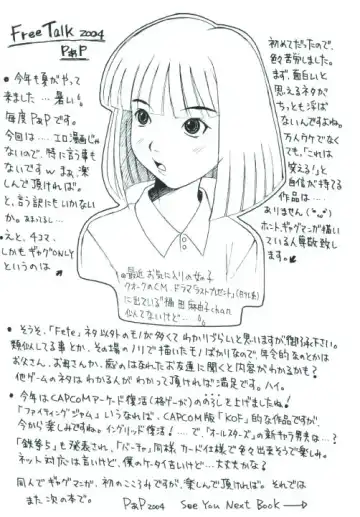 Free Talk 2004
PaP
● 今年も夏がやって
来ました…暑い。
毎度PaPです。
今回は……エロ漫画じゃ
ないので、特に言う事も
ないですw まぁ、楽
しんで頂ければ。
と、言う訳にもいかない
か。
●えと、4コマ、
しかもギャグONLY
というのは
初めてだったので、
色々苦労しました。
まず、面白いと
思えるネタが
ちっとも浮ば
ないんですよね。
万人ウケでなく
ても、「これは
笑える!」と
自信が持てる
作品は……
ありません
ホント、ギャグマンガ描いて
いる人尊敬致し
ます。
●最近お気に入りの女の子
クオークのCM、ドラマ「ラストプレゼント」
に出ている"福田麻由子"chan
似てないけど…。
● そうそ、「Fate」ネタ以外のモノが多くてわかりづらいと思いますが御了承下さい。
類似してる事とか、その場のノリで描いたモノばかりなので。年令的なのとかは
お父さん、お母さんか、歳のはなれたお友達に聞くと内容がわかるかも?
他ゲームのネタはわかる人がわかって頂ければ満足です。ハイ。
● 今年はCAPCOMアーケード復活(格ゲーが)ののろしを上げましたね!
「ファイティングジャム」いうなれば、CAPCOM版「KOF」的な作品ですが、
今から楽しみですね。イングリッド復活!……で、「オールスターズ」の新キャラ男共は…?
「鉄拳5」も発表され、「バーチャ」同様カード仕様で色々出来そうで楽しみ。
ネット対応は言いけど、僕のケータイ古いけど…大丈夫かな?
同人でギャグマンガ、初のこころみですが、楽しんで頂ければ。それでは
また次の本で。 PaP2004 See You Next Book →